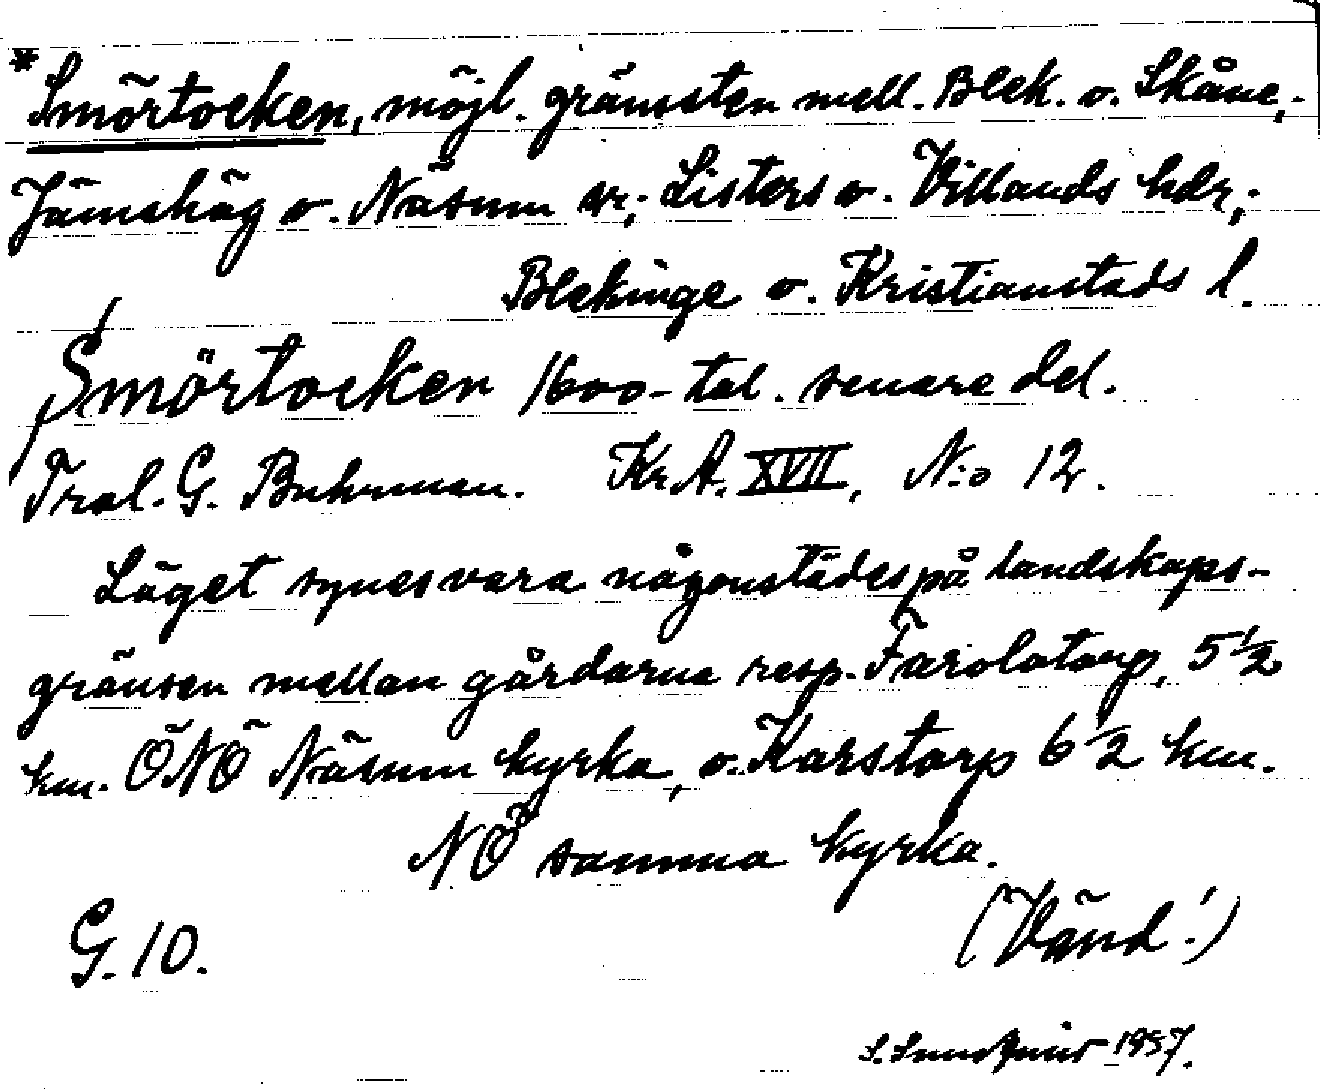 *Smörtocken, möjl. gränssten mell. Blek. o. Skåne,
Jämshög o. Näsum sr; Listers o. Villands hdr,
Blekinge o. Kristianstads l.
Smörtocken 1600-tal. senare del.
G. Buhrman. Kr.A. XVII, N:o 12.
Läget synes vara någonstädes på landskaps-
gränsen mellan gårdarna resp. Farolatorp, 5 1/2
km. ÖNÖ Näsum kyrka, o. Karstorp 6 1/2 km.
NÖ samma kyrka.
G. 10. (Vänd!)
1957.